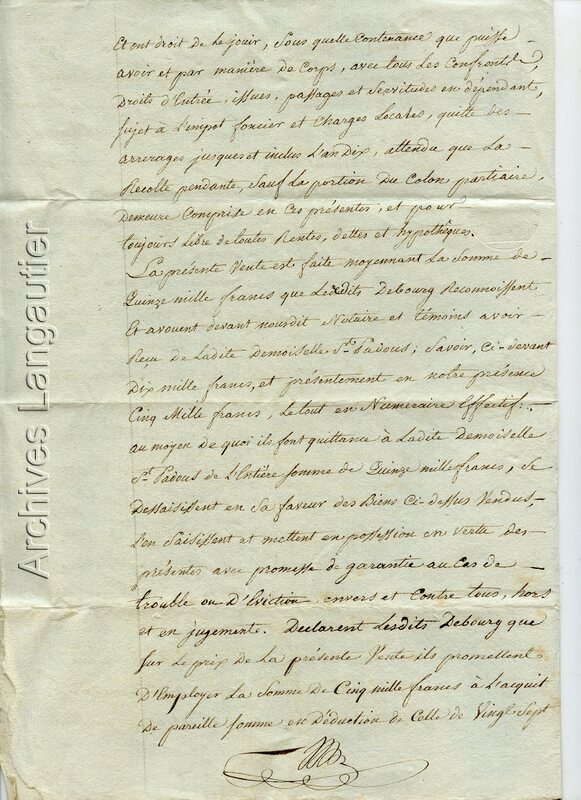 Et ont droit de le jouir, sous quelle contenance que puisse
avoir et par manière de Corps, avec tous les Confronts,
Droits d'Entrée, issues, passages et Servitudes en dépendant,
sujet à L'impot foncier et Charges Locales, quitte des
arrerages jusques et inclus L'an Dix, attendu que La
Recolte pendante, sauf La portion du Colon partiaire,
Demeure Comprise en Ces présentes, et pour
toujours Libre de toutes Rentes, dettes et hypothèques.
La présente Vente est faite moyennant La Somme de
Quinze mille francs que Lesdits Debourg Reconnoissent
Et avouent devant nousdit Notaire et témoins avoir
Reçu de Ladite Demoiselle St. Padous; Savoir, Ci-devant
Dix mille francs, et présentement en notre présence
Cinq Mille francs, Le tout en Numeraire Effectif:
au moyen de quoi ils font quittance à Ladite Demoiselle
St. Padous de L'Entière somme de Quinze mille francs, se
Dessaisissent en sa faveur des Biens Ci-dessus Vendus,
L'en Saisissent et mettent en possession en vertu des
présentes avec promesse de garantie au Cas de
trouble ou D'Eviction envers et Contre tous, hors
et en jugements. Declarent Lesdits Debourg que
sur Le prix de La présente Vente ils promettent
D'Employer La Somme de Cinq mille francs à L'acquit
De pareille somme en Déduction de Celle de Vingt Sept
Archives Langautier